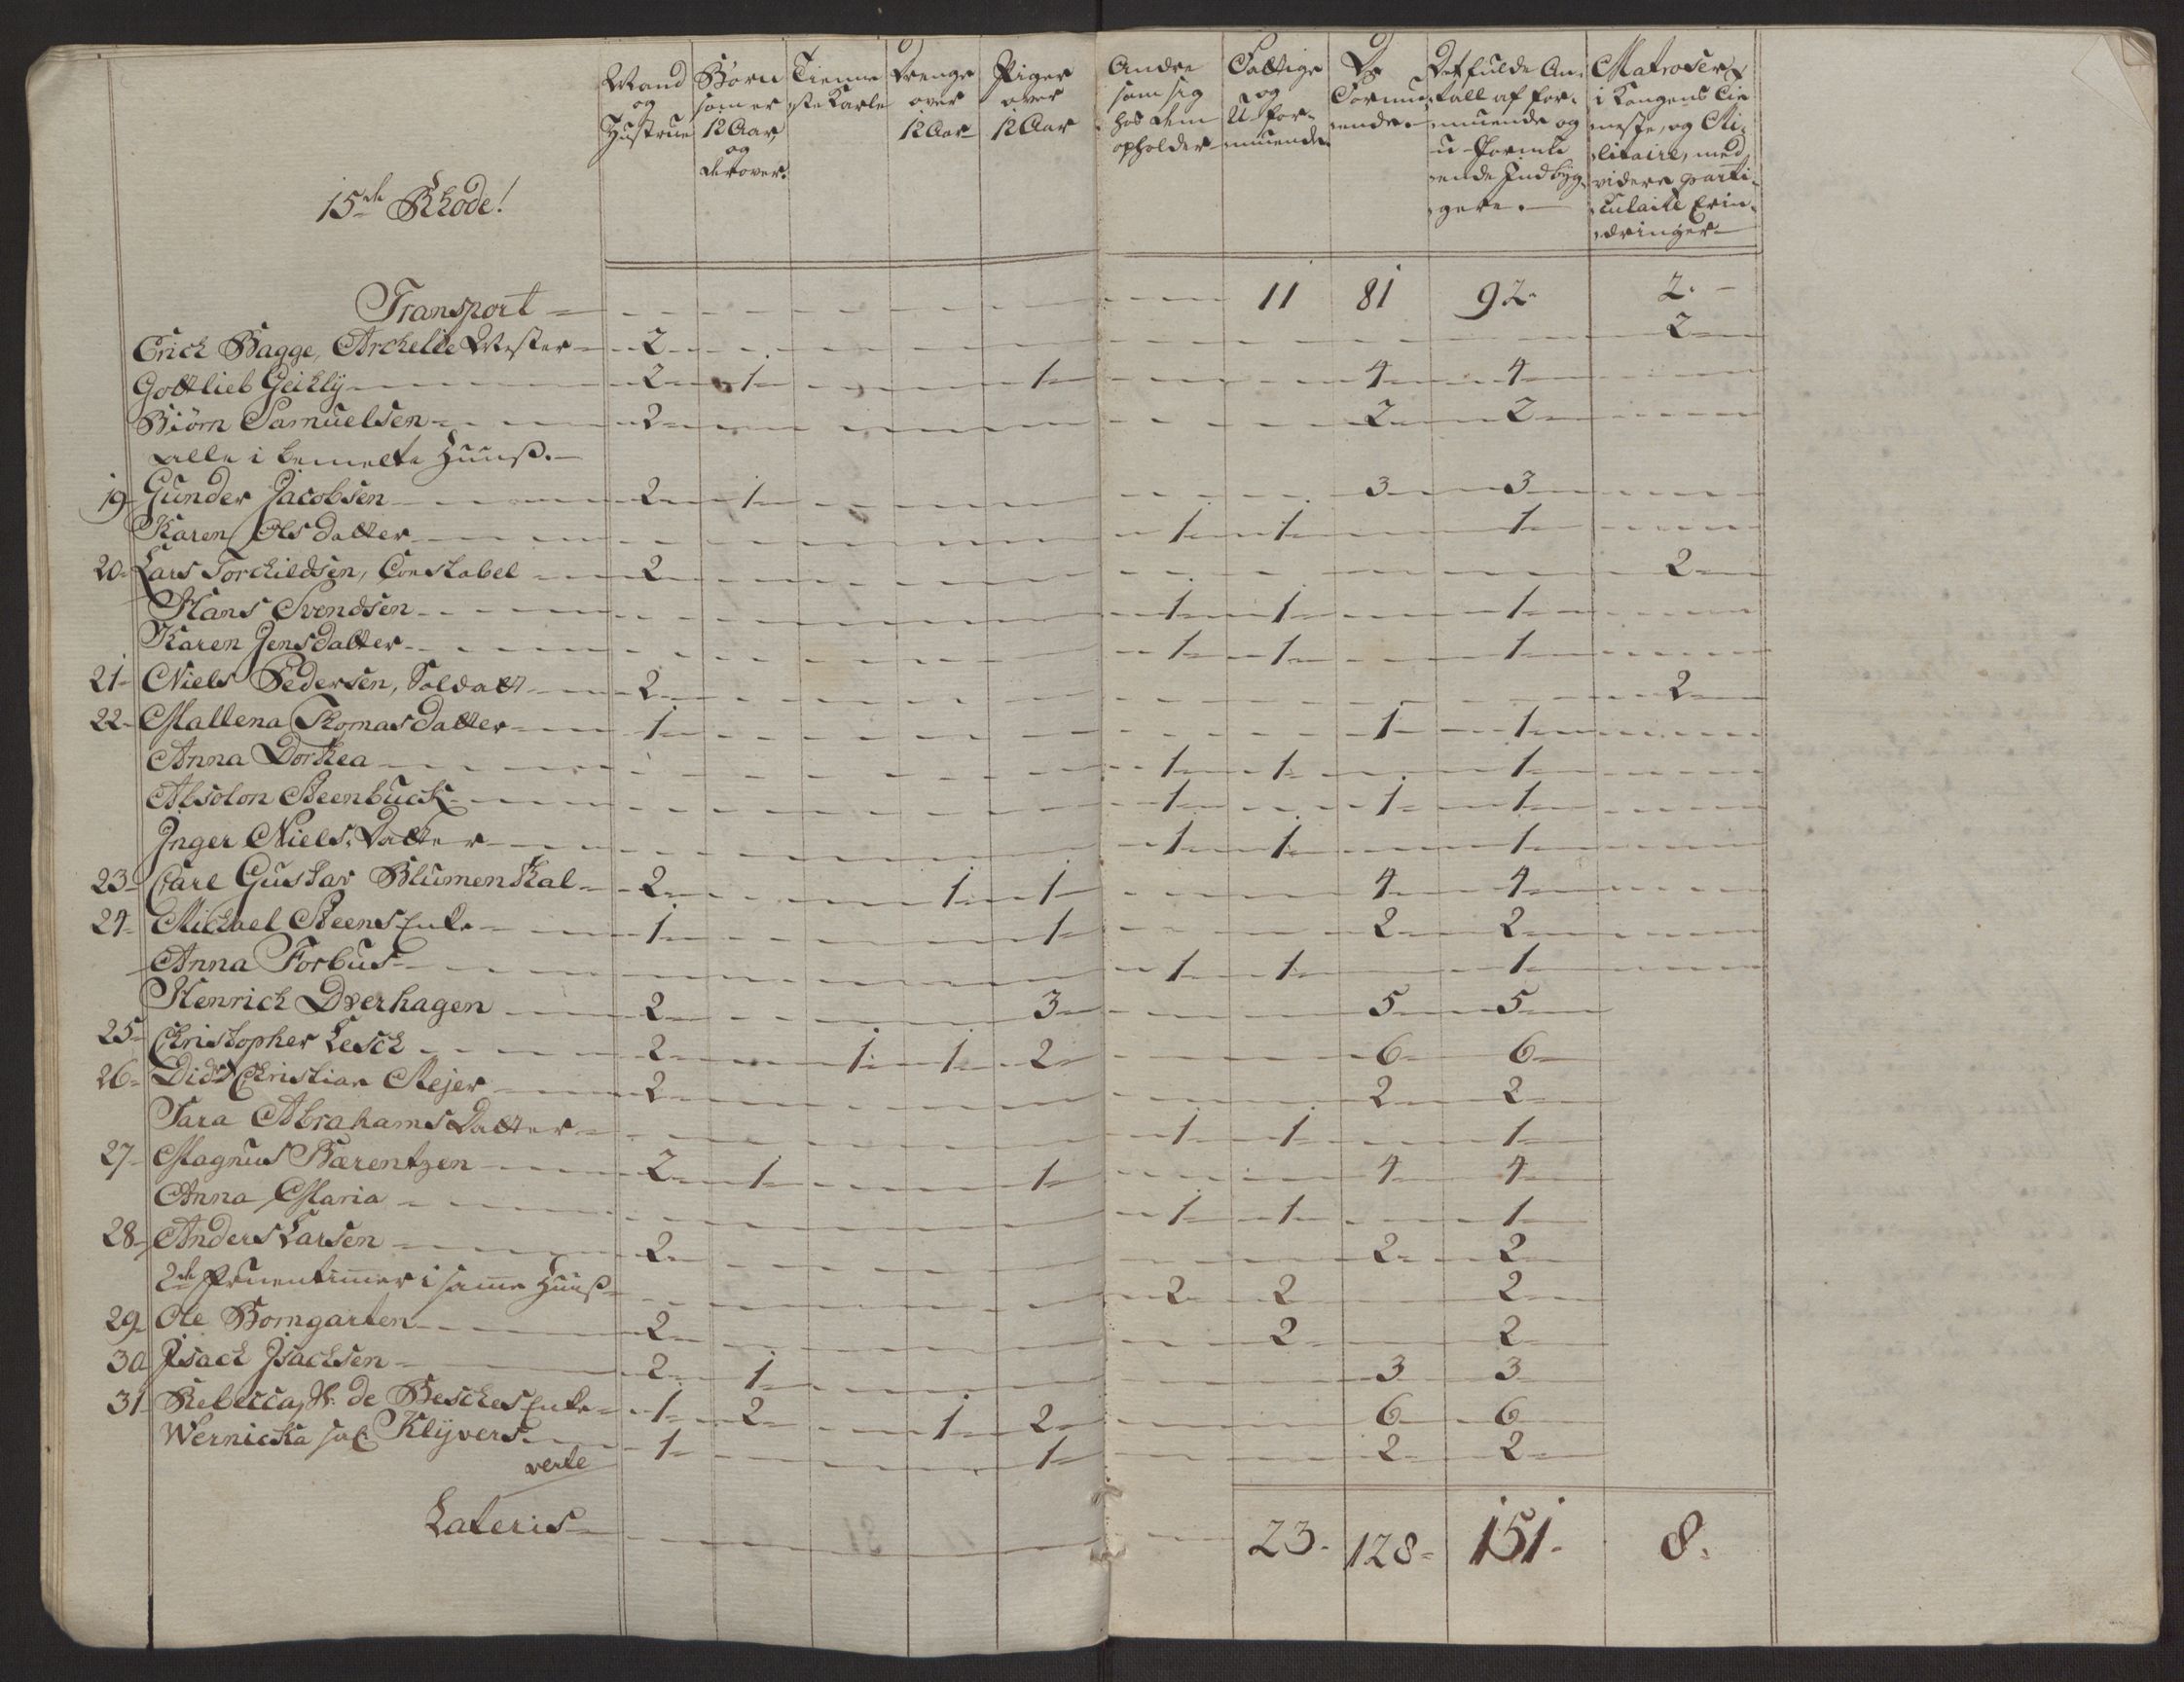 Mand og Hustrue | Börn som er 12 Aar og derover. | Tienneste Karle | Drenge over 12 Aar | Piger over 12 Aar | Andre som sig hos dem opholder | Fattige og U-formuende | De Formuende | Det fulde Antall af formuende og u-formuende Indbyggere. | Matroser i Kongens Tieneste, og Militaire, med videre particulaire Erindringer
15de Rhode!
Transport - 11 81 92. 2.
Erich Bagge, Archelie Mester - 2 - 2
Gottlieb Geitzly - 2 - 1 - 1 - 4 - 4
Biörn Samuelsen - 2 - 2 - 2
alle i bemelte Huuß.
19 Gunder Jacobsen - 2 - 1 - 3 - 3
Karen Olsdatter - 1 - 1 - 1
20 Lars Torchildsen, Constabel - 2 - 2
Hans Svendsen - 1 - 1 - 1
Karen Jensdatter - 1 - 1 - 1
21 Niels Pedersen, Soldatt - 2 - 2
22 Mallena Thomasdatter - 1 - 1 - 1
Anna Dorthea - 1 - 1 - 1
Absolon Steenbuck - 1 - 1 - 1
Inger Niels Datter - 1 - 1 - 1
23 Carl Gustav Blumenthal - 2 - 1 - 1 - 4 - 4
24 Michael Steens Enke - 1 - 1 - 2 - 2
Anna Forbus - 1 - 1 - 1
Henrich Dverhagen - 2 - 3 - 5 - 5
25 Christopher Lesch - 2 - 1 - 1 - 2 - 6 - 6
26 Didr Christian Mejer - 2 - 2 - 2
Sara Abrahams Datter - 1 - 1 - 1
27 Magnus Bærentzen - 2 - 1 - 1 - 4 - 4
Anna Maria - 1 - 1 - 1
28 Anders Larsen - 2 - 2 - 2
2de Fruentimer i samme Huuß - 2 - 2 - 2
29 Ole Bomgarten - 2 - 2 - 2
30 Isach Isachsen - 2 - 1 - 3 - 3
31 Rebecca de Besches Enke - 1 - 2 - 1 - 2 - 6 - 6
Wernicka sal Klyvers - 1 - 1 - 2 - 2
verte
Lateris - 23. 128 - 151. 8.